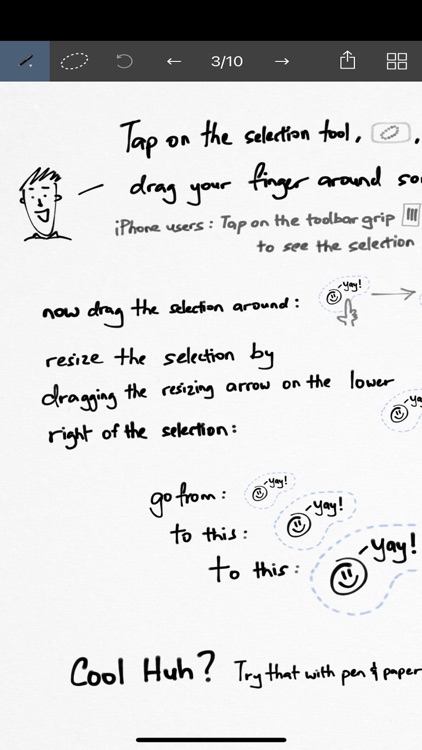 3/10
Tap on the selection tool,
drag your finger around
iPhone users: Tap on the toolbar grip
to see the selection
now drag the selection around:
yay!
resize the selection by
dragging the resizing arrow on the lower
right of the selection:
go from:
yay!
to this:
yay!
to this:
yay!
Cool Huh? Try that with pen & paper